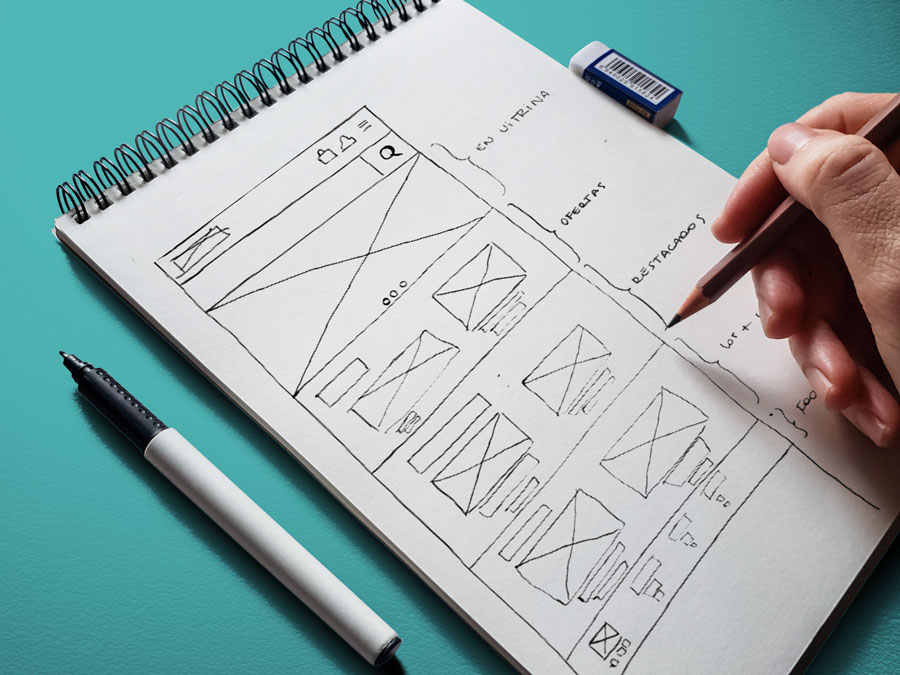 EN VITRINA
OFERTAS
DESTACADOS
LOS +
FOO